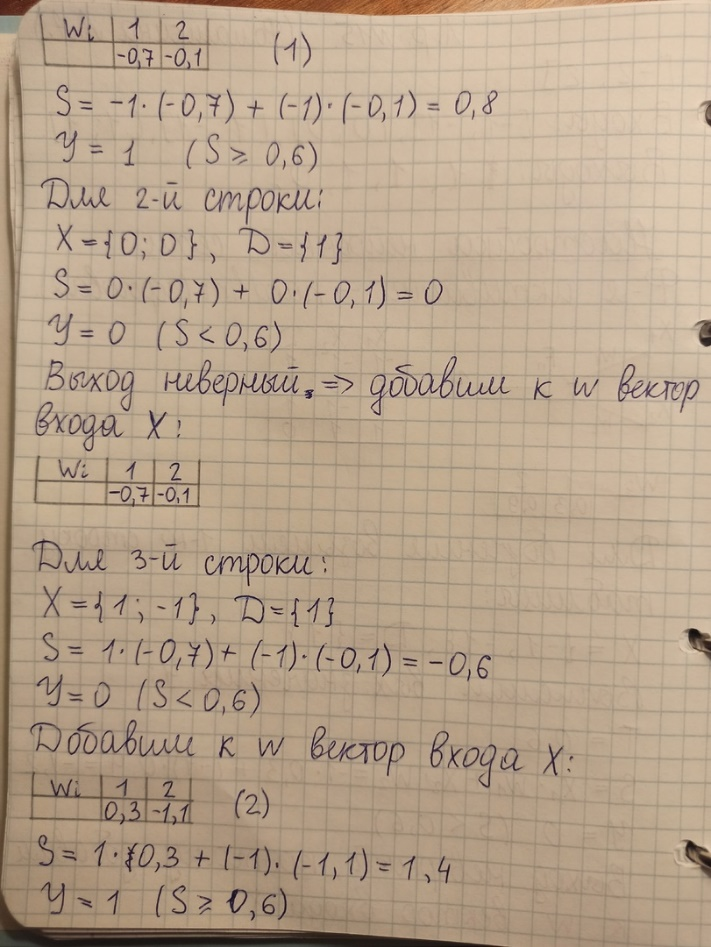 Wi 1 2
-0,7 -0,1 (1)
S = -1·(-0,7) + (-1)·(-0,1) = 0,8
Y = 1 (S ≥ 0,6)
Для 2-й строки:
X = {0; 0}, D = {1}
S = 0·(-0,7) + 0·(-0,1) = 0
Y = 0 (S < 0,6)
Выход неверный, => добавим к w вектор
входа X:
Wi 1 2
-0,7 -0,1
Для 3-й строки:
X = {1; -1}, D = {1}
S = 1·(-0,7) + (-1)·(-0,1) = -0,6
Y = 0 (S < 0,6)
Добавим к w вектор входа X:
Wi 1 2
0,3 -1,1 (2)
S = 1·0,3 + (-1)·(-1,1) = 1,4
Y = 1 (S ≥ 0,6)